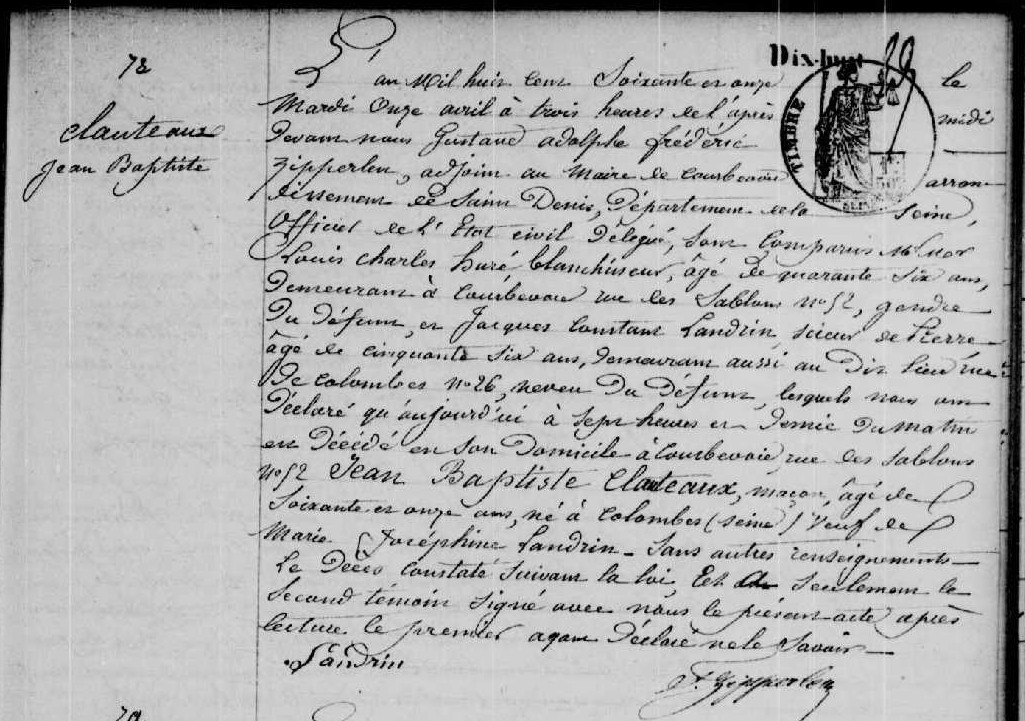 78
Clauteaux
Jean Baptiste
Dix-huit
TIMBRE
L'an Mil huit cent Soixante et onze le
Mardi Onze avril à trois heures de l'après midi
Devant nous Gustave adolphe frédéric
Zipperlen, adjoint au Maire de Courbevoie arron-
dissement de Saint Denis, Département de la Seine,
Officier de l'Etat civil Délégué, sont Comparus
Louis Charles huré blanchisseur, âgé de quarante six ans,
Demeurant à Courbevoie rue des Sablons No 52, gendre
Du défunt, et Jacques Constant Landrin, scieur de Pierre
âgé de cinquante six ans, demeurant aussi au Dit lieu rue
De Colombes No 26, neveu Du Defunt, lesquels nous ont
Déclaré qu'aujourd'ui à sept heures et Demie Du matin
est Décédé en son Domicile à Courbevoie, rue des Sablons
No 52 Jean Baptiste Clauteaux, maçon, âgé de
Soixante et onze ans, né à Colombes (Seine) Veuf de
Marie Joséphine Landrin - Sans autres renseignements
Le Décès Constaté suivant la loi, Et seulement le
Second témoin signé avec nous le présent acte après
lecture le premier ayant Déclaré ne le Savoir
Landrin
Zipperlen
79